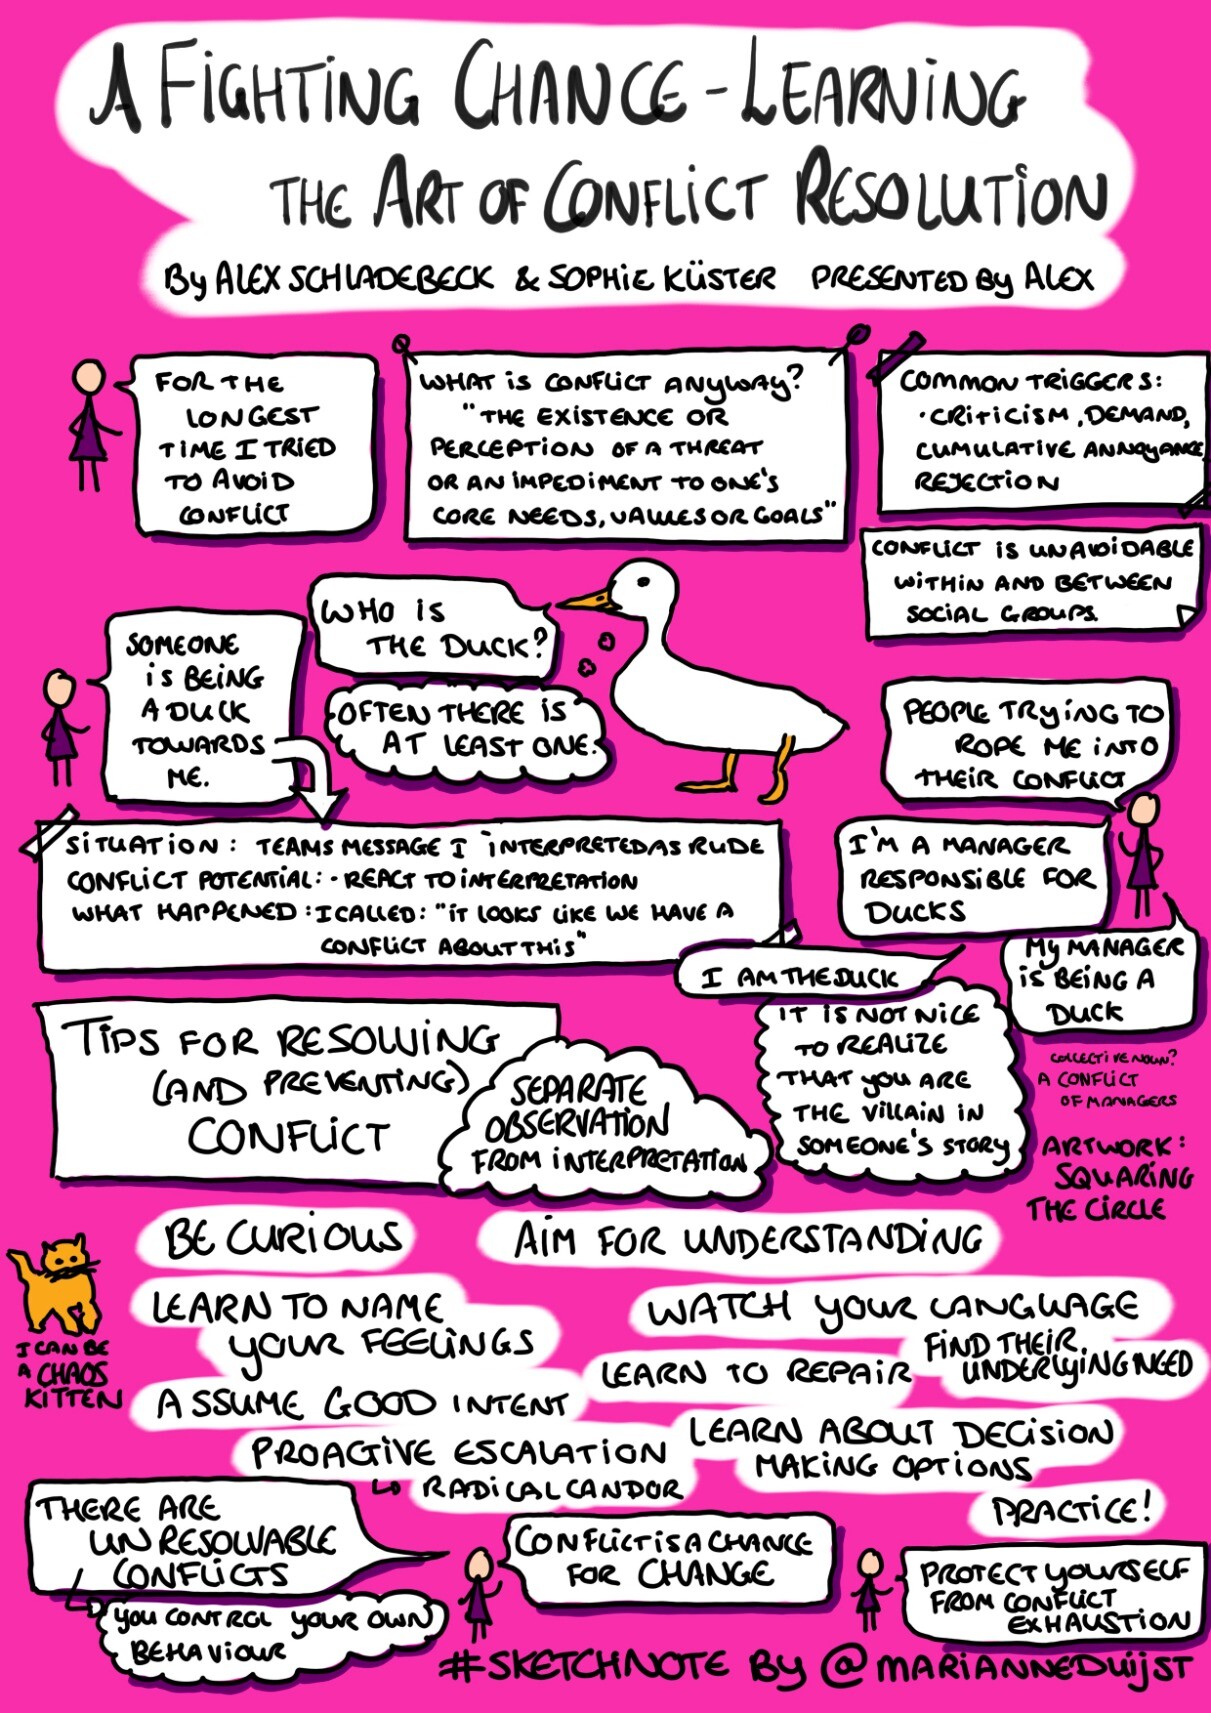 A FIGHTING CHANCE - LEARNING
THE ART OF CONFLICT RESOLUTION
BY ALEX SCHLADEBECK & SOPHIE KÜSTER PRESENTED BY ALEX
FOR THE
LONGEST
TIME I TRIED
TO AVOID
CONFLICT
WHAT IS CONFLICT ANYWAY?
"THE EXISTENCE OR
PERCEPTION OF A THREAT
OR AN IMPEDIMENT TO ONE'S
CORE NEEDS, VALUES OR GOALS"
COMMON TRIGGERS:
· CRITICISM, DEMAND,
CUMULATIVE ANNOYANCE,
REJECTION
CONFLICT IS UNAVOIDABLE
WITHIN AND BETWEEN
SOCIAL GROUPS.
SOMEONE
IS BEING
A DUCK
TOWARDS
ME.
WHO IS
THE DUCK?
OFTEN THERE IS
AT LEAST ONE.
PEOPLE TRYING TO
ROPE ME INTO
THEIR CONFLICT
SITUATION: TEAMS MESSAGE I INTERPRETED AS RUDE
CONFLICT POTENTIAL: · REACT TO INTERPRETATION
WHAT HAPPENED: I CALLED: "IT LOOKS LIKE WE HAVE A
CONFLICT ABOUT THIS"
I'M A MANAGER
RESPONSIBLE FOR
DUCKS
MY MANAGER
IS BEING A
DUCK
I AM THE DUCK
IT IS NOT NICE
TO REALIZE
THAT YOU ARE
THE VILLAIN IN
SOMEONE'S STORY
COLLECTIVE NOUN?
A CONFLICT
OF MANAGERS
ARTWORK:
SQUARING
THE CIRCLE
TIPS FOR RESOLVING
(AND PREVENTING)
CONFLICT
SEPARATE
OBSERVATION
FROM INTERPRETATION
BE CURIOUS
AIM FOR UNDERSTANDING
I CAN BE
A CHAOS
KITTEN
LEARN TO NAME
YOUR FEELINGS
WATCH YOUR LANGUAGE
FIND THEIR
UNDERLYING NEED
LEARN TO REPAIR
ASSUME GOOD INTENT
PROACTIVE ESCALATION
RADICAL CANDOR
LEARN ABOUT DECISION
MAKING OPTIONS
PRACTICE!
THERE ARE
UNRESOLVABLE
CONFLICTS
YOU CONTROL YOUR OWN
BEHAVIOUR
CONFLICT IS A CHANCE
FOR CHANGE
PROTECT YOURSELF
FROM CONFLICT
EXHAUSTION
#SKETCHNOTE BY @MARIANNEDUIJST